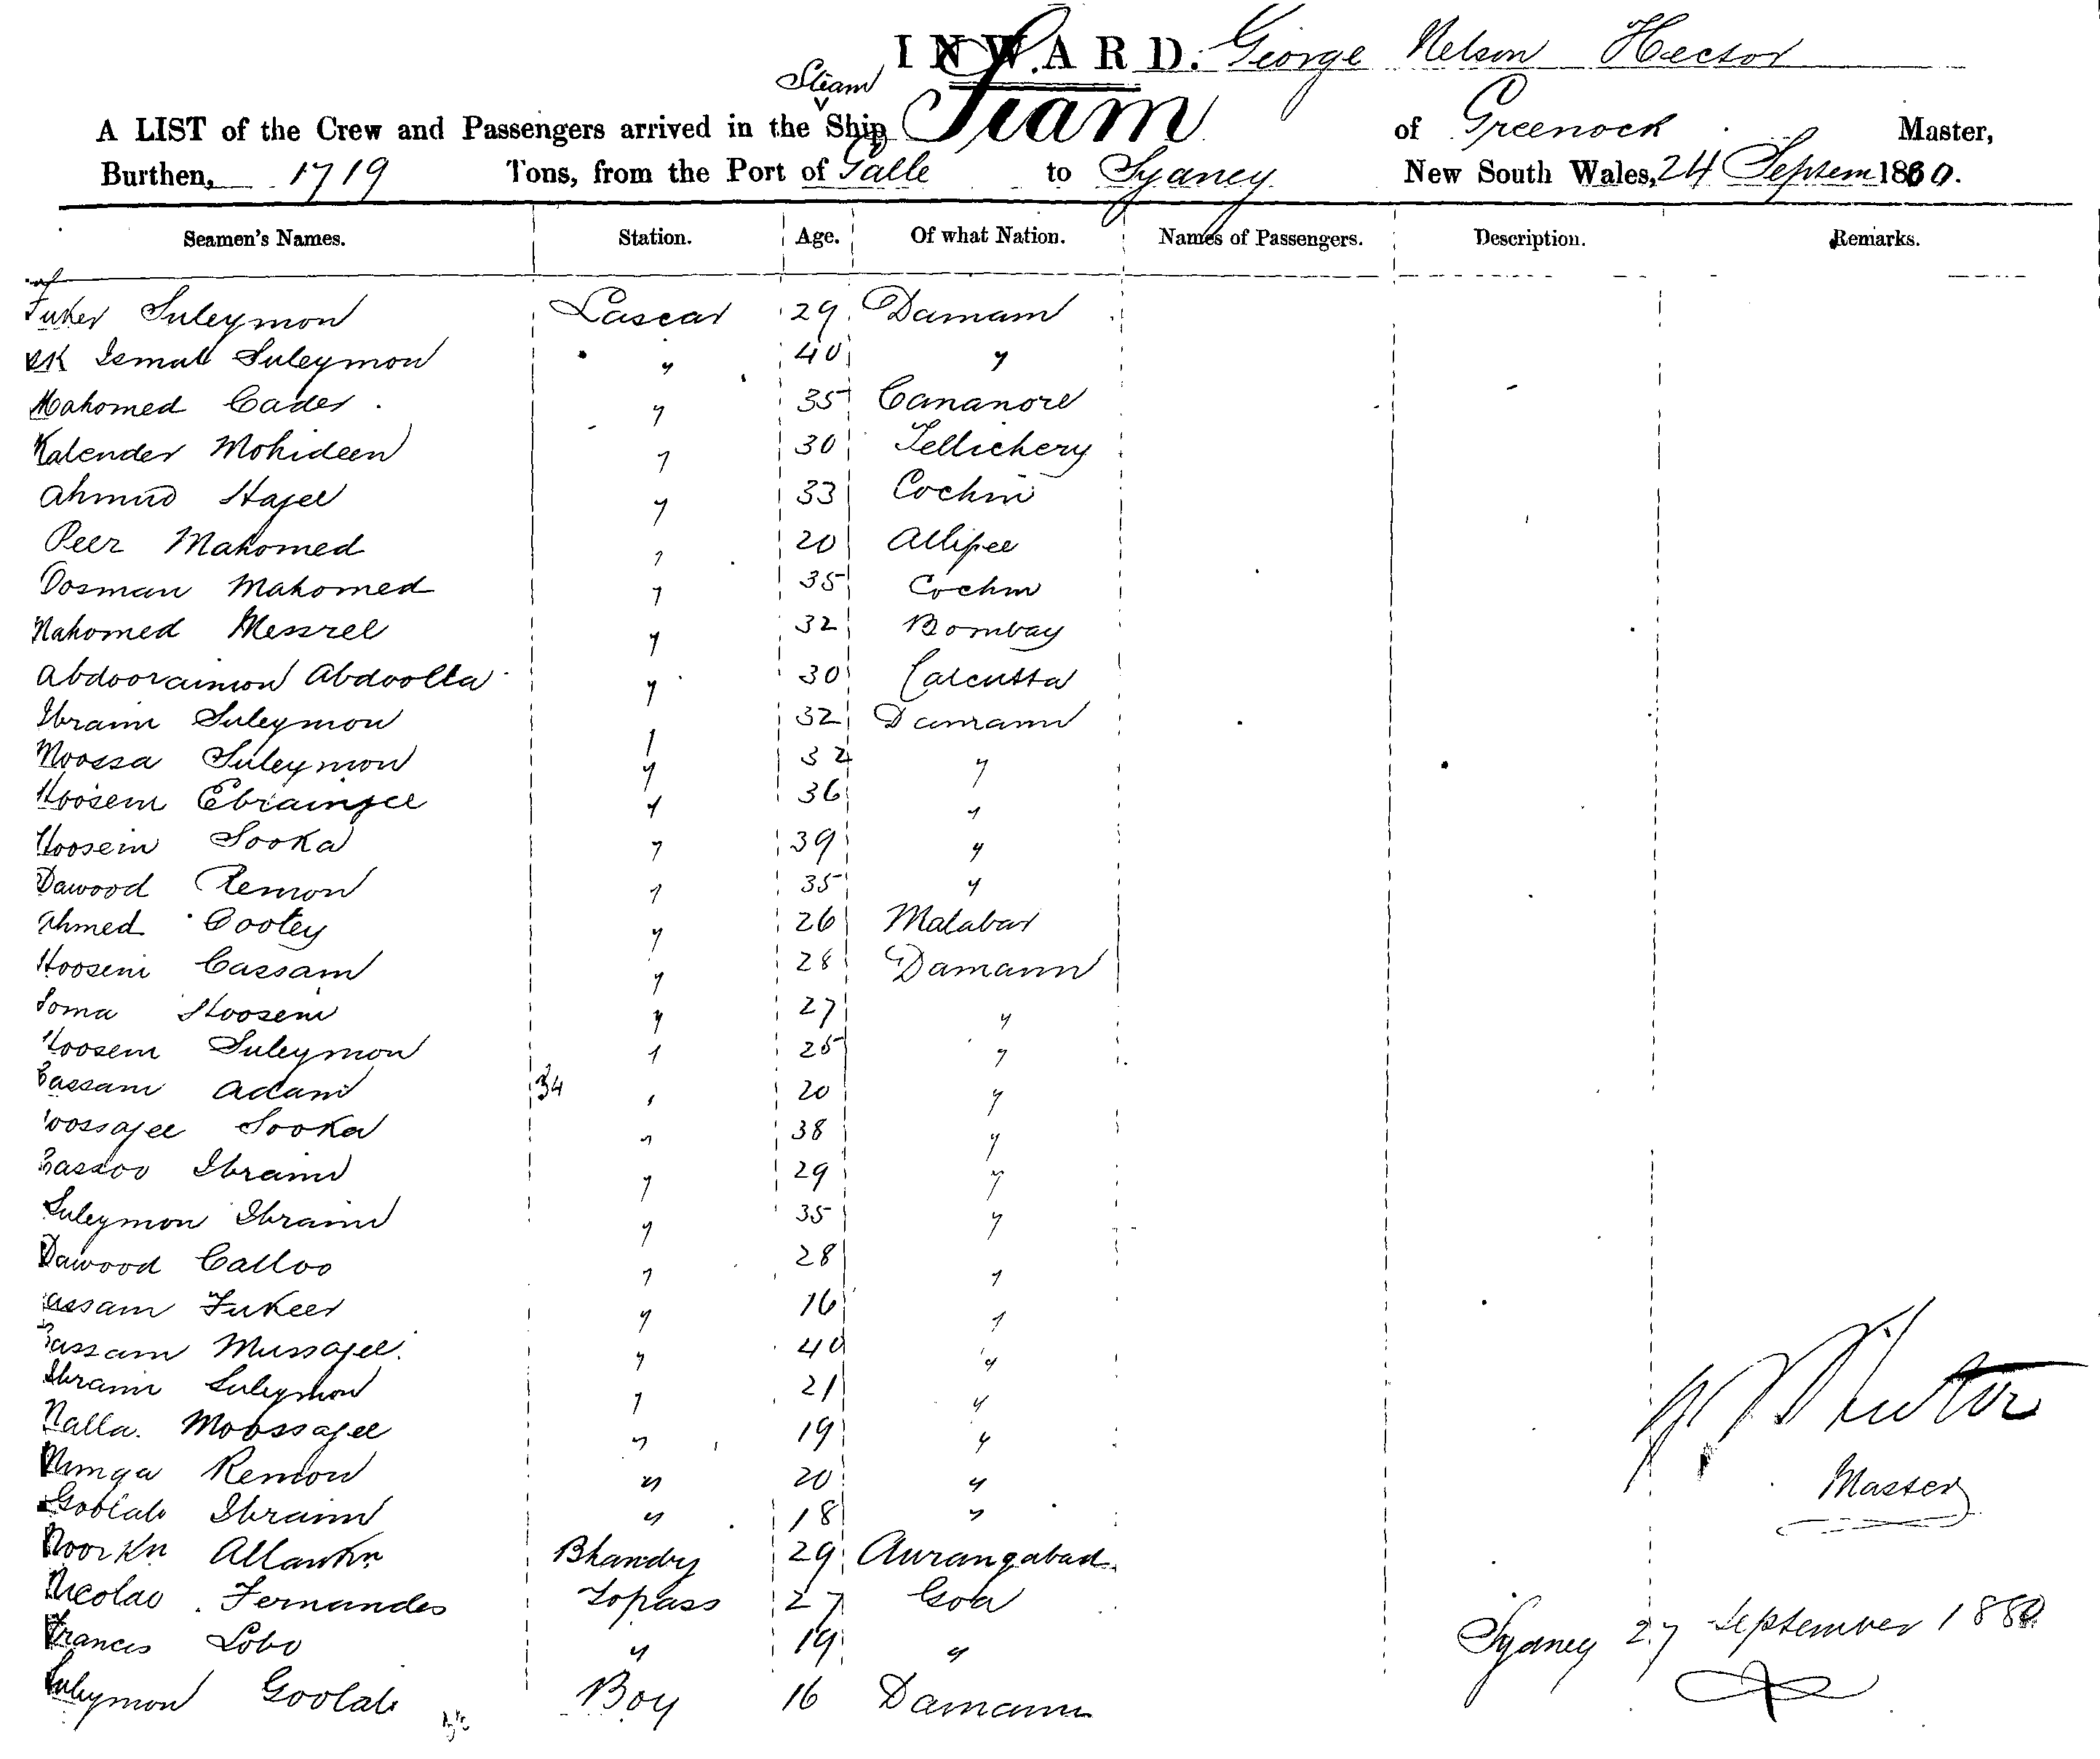 INWARD. George Nelson Hector
Steam
A LIST of the Crew and Passengers arrived in the Ship Siam of Greenock Master,
Burthen, 1719 Tons, from the Port of Galle to Sydney New South Wales, 24 Septem 1880.
Seamen's Names. Station. Age. Of what Nation. Names of Passengers. Description. Remarks.
Fuker Suleymon Lascar 29 Damam
Ismal Suleymon " 40 "
Mahomed Cader " 35 Cananore
Kalender Mohideen " 30 Tellichery
Ahmud Hajee " 33 Cochin
Peer Mahomed " 20 Allipee
Oosman Mahomed " 35 Cochin
Mahomed " 32 Bombay
Abdooraimon Abdoolla " 30 Calcutta
Ibraim Suleymon " 32 Damann
Moossa Suleymon " 32 "
Hoosein Ebraimjee " 36 "
Hoosein Sooka " 39 "
Dawood Remon " 35 "
Ahmed Cootey " 26 Malabar
Hoosein Cassam " 28 Damann
Soma Hoosein " 27 "
Hoosein Suleymon " 25 "
Cassam Adam 34 " 20 "
oossajee Sooka " 38 "
Cassoo Ibraim " 29 "
Suleymon Ibraim " 35 "
Dawood Calloo " 28 "
assam Fukeer " 16 "
Cassam Mussajee. " 40 "
Ibraim Suleymon " 21 "
Nalla. Moossajee " 19 "
Remon " 20 "
Goolab Ibraim " 18 "
Noorkn Allawkn Bhandry 29 Aurangabad
Nicolao Fernandes Topass 27 Goa
Francis Lobo " 19 "
Suleymon Goolab Boy 16 Damann
Master
Sydney 27 September 1880